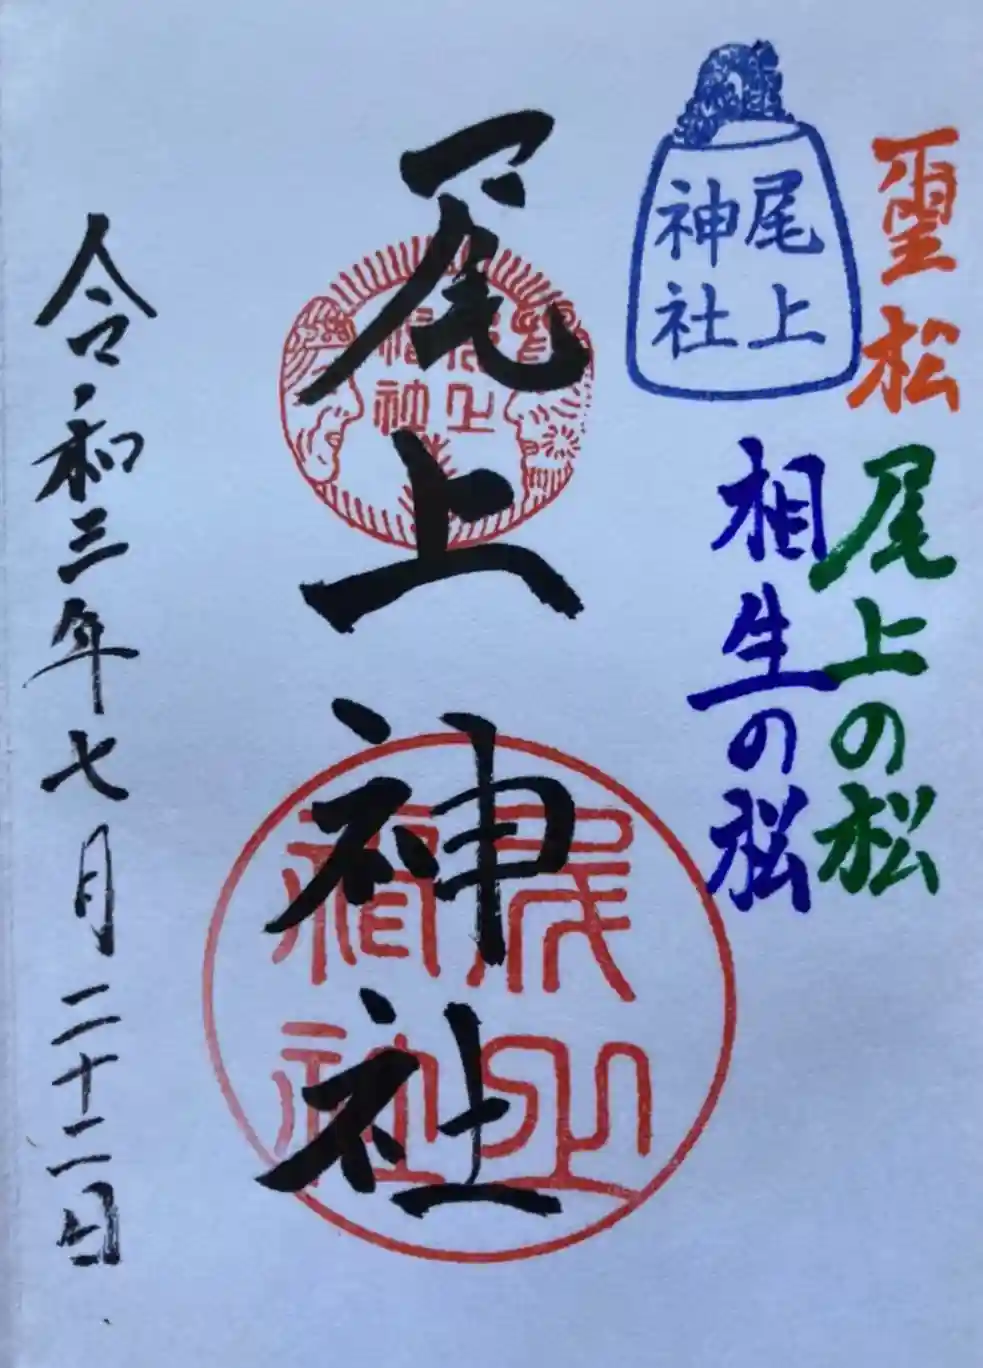 松
尾上の松
相生の松
尾上
神社
尾上神社
尾上
神社
尾上
神社
令和三年七月二十二日